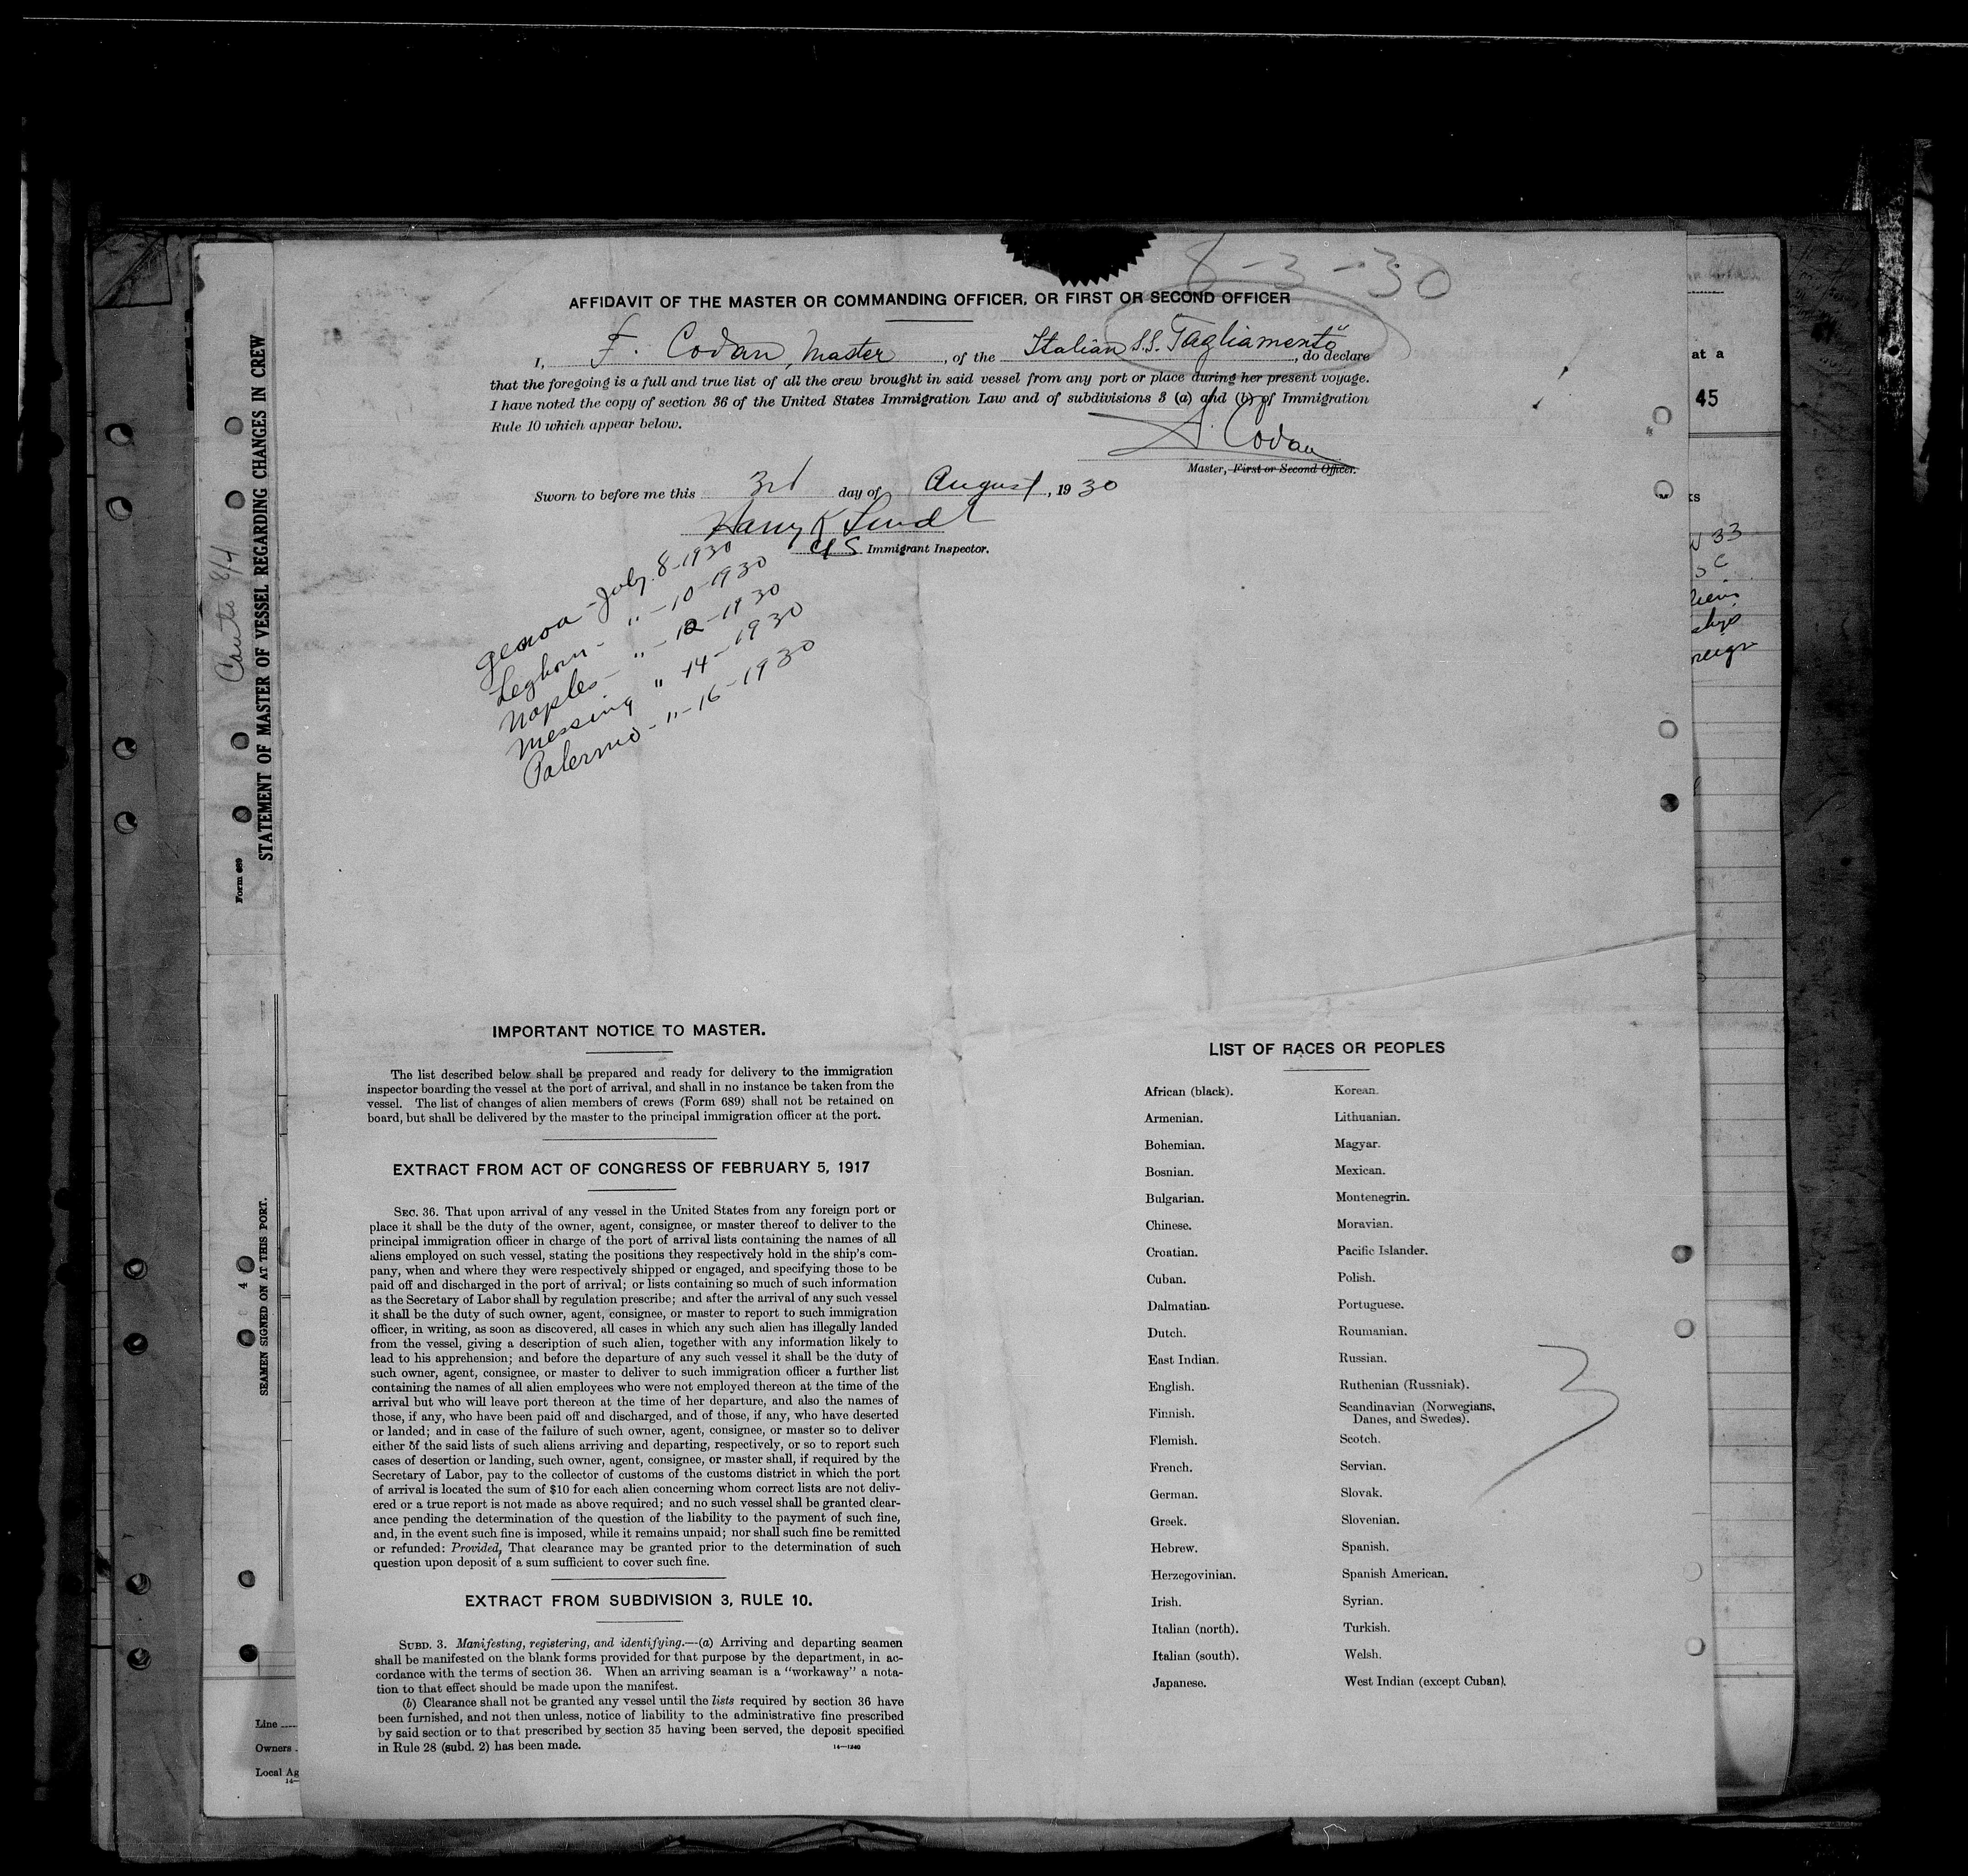 8-3-30
AFFIDAVIT OF THE MASTER OR COMMANDING OFFICER, OR FIRST OR SECOND OFFICER
I, F. Codan, Master, of the Italian S.S. Tagliamento", do declare
that the foregoing is a full and true list of all the crew brought in said vessel from any port or place during her present voyage.
I have noted the copy of section 36 of the United States Immigration Law and of subdivisions 3 (a) and (b) of Immigration
Rule 10 which appear below.
F. Codan
Master, First or Second Officer.
Sworn to before me this 3rd day of August, 1930
Harry K
US Immigrant Inspector.
Genoa - July. 8-1930
Leghorn - " - 10-1930
Naples - " - 12-1930
Messing " 14-1930
Palermo - " - 16-1930
IMPORTANT NOTICE TO MASTER.
The list described below shall be prepared and ready for delivery to the immigration
inspector boarding the vessel at the port of arrival, and shall in no instance be taken from the
vessel. The list of changes of alien members of crews (Form 689) shall not be retained on
board, but shall be delivered by the master to the principal immigration officer at the port.
EXTRACT FROM ACT OF CONGRESS OF FEBRUARY 5, 1917
SEC. 36. That upon arrival of any vessel in the United States from any foreign port or
place it shall be the duty of the owner, agent, consignee, or master thereof to deliver to the
principal immigration officer in charge of the port of arrival lists containing the names of all
aliens employed on such vessel, stating the positions they respectively hold in the ship's com-
pany, when and where they were respectively shipped or engaged, and specifying those to be
paid off and discharged in the port of arrival; or lists containing so much of such information
as the Secretary of Labor shall by regulation prescribe; and after the arrival of any such vessel
it shall be the duty of such owner, agent, consignee, or master to report to such immigration
officer, in writing, as soon as discovered, all cases in which any such alien has illegally landed
from the vessel, giving a description of such alien, together with any information likely to
lead to his apprehension; and before the departure of any such vessel it shall be the duty of
such owner, agent, consignee, or master to deliver to such immigration officer a further list
containing the names of all alien employees who were not employed thereon at the time of the
arrival but who will leave port thereon at the time of her departure, and also the names of
those, if any, who have been paid off and discharged, and of those, if any, who have deserted
or landed; and in case of the failure of such owner, agent, consignee, or master so to deliver
either of the said lists of such aliens arriving and departing, respectively, or so to report such
cases of desertion or landing, such owner, agent, consignee, or master shall, if required by the
Secretary of Labor, pay to the collector of customs of the customs district in which the port
of arrival is located the sum of $10 for each alien concerning whom correct lists are not deliv-
ered or a true report is not made as above required; and no such vessel shall be granted clear-
ance pending the determination of the question of the liability to the payment of such fine,
and, in the event such fine is imposed, while it remains unpaid; nor shall such fine be remitted
or refunded: Provided, That clearance may be granted prior to the determination of such
question upon deposit of a sum sufficient to cover such fine.
EXTRACT FROM SUBDIVISION 3, RULE 10.
SUBD. 3. Manifesting, registering, and identifying.—(a) Arriving and departing seamen
shall be manifested on the blank forms provided for that purpose by the department, in ac-
cordance with the terms of section 36. When an arriving seaman is a "workaway" a nota-
tion to that effect should be made upon the manifest.
(b) Clearance shall not be granted any vessel until the lists required by section 36 have
been furnished, and not then unless, notice of liability to the administrative fine prescribed
by said section or to that prescribed by section 35 having been served, the deposit specified
in Rule 28 (subd. 2) has been made.
14—1240
LIST OF RACES OR PEOPLES
African (black).
Armenian.
Bohemian.
Bosnian.
Bulgarian.
Chinese.
Croatian.
Cuban.
Dalmatian.
Dutch.
East Indian.
English.
Finnish.
Flemish.
French.
German.
Greek.
Hebrew.
Herzegovinian.
Irish.
Italian (north).
Italian (south).
Japanese.
Korean.
Lithuanian.
Magyar.
Mexican.
Montenegrin.
Moravian.
Pacific Islander.
Polish.
Portuguese.
Roumanian.
Russian.
Ruthenian (Russniak).
Scandinavian (Norwegians,
Danes, and Swedes).
Scotch.
Servian.
Slovak.
Slovenian.
Spanish.
Spanish American.
Syrian.
Turkish.
Welsh.
West Indian (except Cuban).
3
Form 689
STATEMENT OF MASTER OF VESSEL REGARDING CHANGES IN CREW
4
SEAMEN SIGNED ON AT THIS PORT.
Line
Owners
Local Ag
14—
at a
45
33